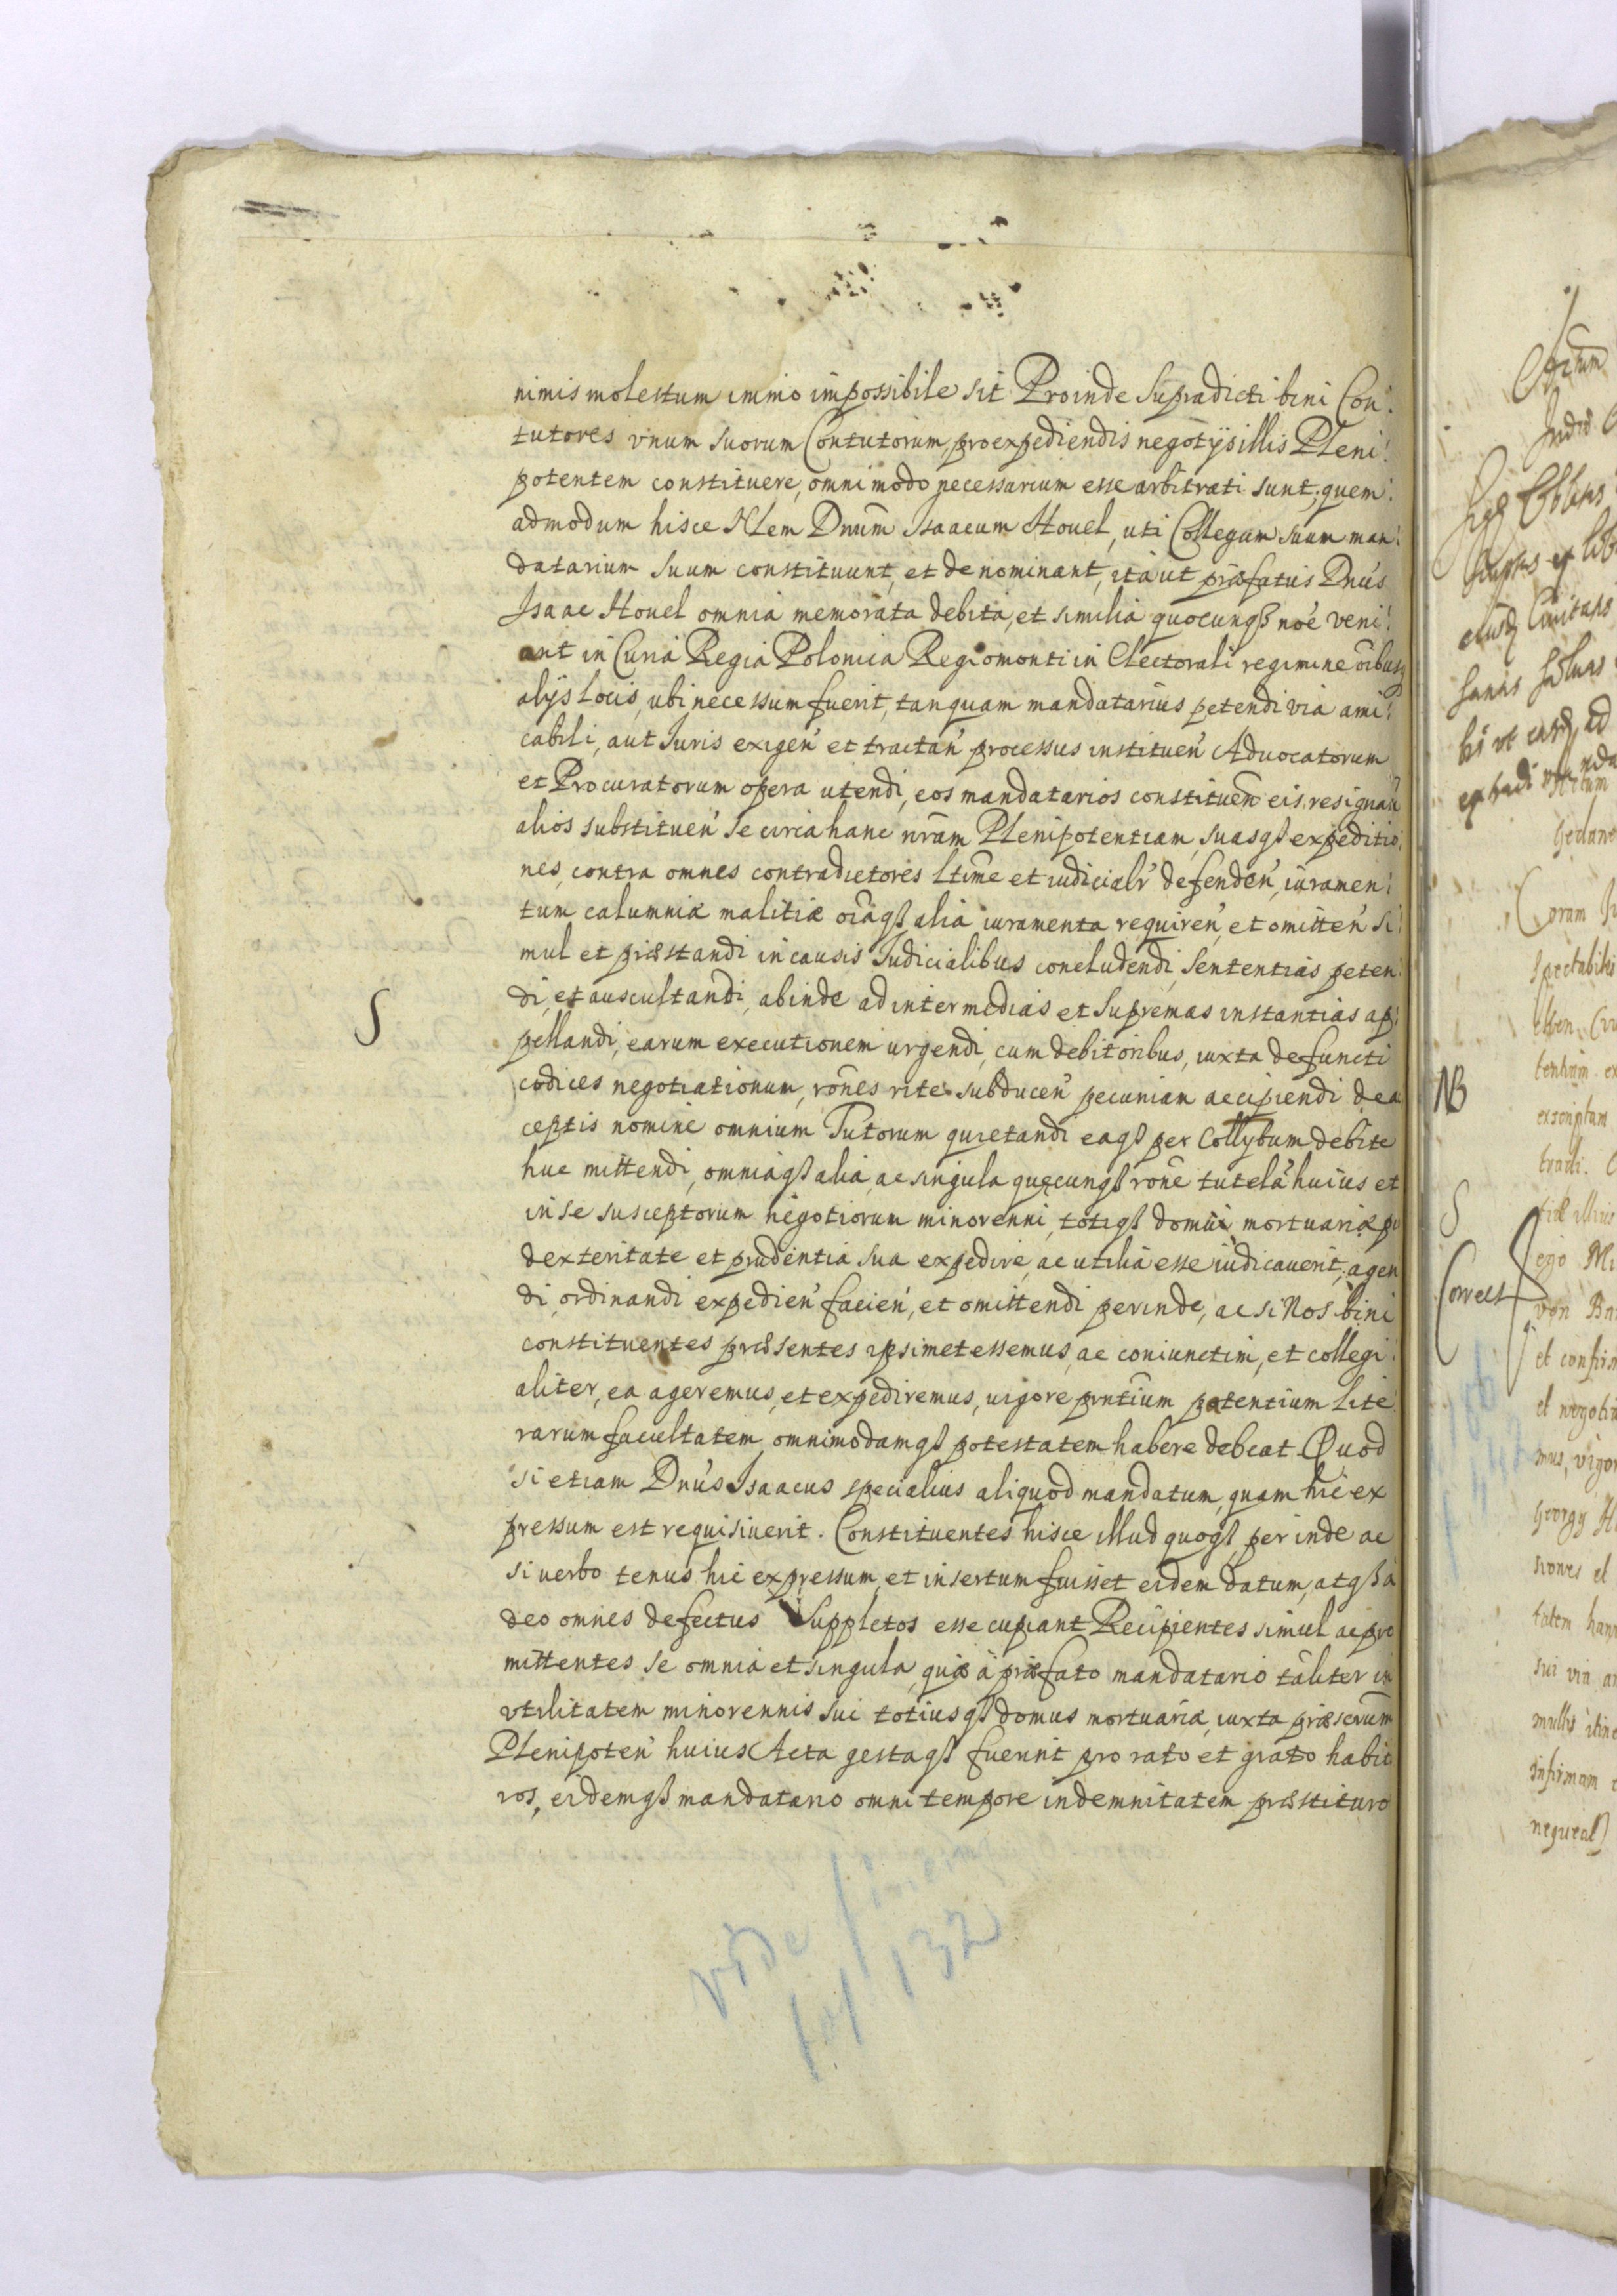 nimis molestum immo impossibile sit Proinde Supradicti bini Con:
tutores vnum suorum Contutorum, pro expediendis negotÿs illis Pleni:
potentem constituere, omni modo necessarium esse arbitrati sunt, quem:
admodum hisce Nlem Dnūm Isaacum Houel, uti Collegam suum man:
datarium suum constituunt, et denominant, ità ut præfatus Dnūs
Isaac Houel omnia memorata debita, et similia quocunqß noē veni:
ant in Curia Regia Polonica Regiomonti in Electorali regimine oībusqß
alÿs locis, ubi necessum fuerit, tanquam mandatarius petendi via ami:
cabili, aut Iuris exigen̄ et tractan̄ processus instituen̄ Aduocatorum
et Procuratorum opera utendi, eos mandatarios constituen̄ eis resignan̄
alios substituen̄ se circa hanc nr̄am Plenipotentiam, suasqß expeditio:
nes, contra omnes contradictores ltime et iudicialr̄ defenden̄, iuramen:
tum calumniæ malitiæ oīaqß alia iuramenta requiren̄, et omitten̄ si:
mul et præstandi in causis Iudicialibus concludendi, sententias peten:
di, et auscultandi, abinde ad intermedias et Supremas instantias ap:
pellandi, earum executionem urgendi, cum debitoribus, iuxta defuncti
codices negotiationum, rōnes rite subducen̄ pecuniam accipiendi de a
ceptis nomine omnium Tutorum quietandi eaqß per Collybum debite
huc mittendi, omniaqß alia, ac singula quęcunqß rōne tutelæ huius et
in se susceptorum negotiorum minorenni, totiqß domui mortuariæ p
dexteritate et prudentia sua expedire, ac utilia esse iudicauerit, agen
di, ordinandi expedien̄ facien̄, et omittendi perinde, ac si Nos bini
constituentes præsentes ipsimet essemus, ac coniunctim, et collegi:
aliter, ea ageremus, et expediremus, uigore pnt̄ium patentium lite
rarum facultatem, omnimodamqß potestatem habere debeat Quod
si etiam Dnūs Isaacus specialius aliquod mandatum, quam hic ex
pressum est requisiuerit. Constituentes hisce illud quoqß, per inde ac
si uerbo tenus hic expressum, et insertum fuisset eidem datum, atqß a
deo omnes defectus Suppletos esse cupiant Recipientes simul ac pro
mittentes se omnia et singula, quæ à præfato mandatario taliter in
vtilitatem minorennis sui totiusqß domus mortuariæ, iuxta præsentium
Plenipoten̄ huius Acta gestaqß fuerint pro rato et grato habit
ros, eidemqß mandatario omni tempore indemnitatem præstituro
S
vide
fol 132
NB
S
Correct